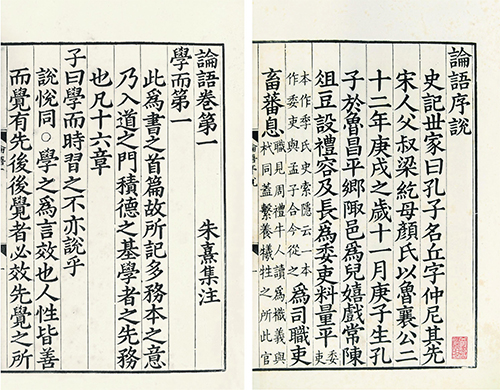 論語序說
史記世家曰孔子名丘字仲尼其先
宋人父叔梁紇母顏氏以魯襄公二
十二年庚戌之歲十一月庚子生孔
子於魯昌平鄉陬邑爲兒嬉戲常陳
俎豆設禮容及長爲委吏料量平委吏
本作季氏史索隱云一本作委吏與孟子合今從之爲司職吏
畜蕃息職見周禮牛人讀爲樴義與杙同蓋繫養犧牲之所此官
論語卷第一
學而第一 朱熹集注
此爲書之首篇故所記多務本之意
乃入道之門積德之基學者之先務
也凡十六章
子曰學而時習之不亦說乎
說悅同○學之爲言效也人性皆善
而覺有先後後覺者必效先覺之所